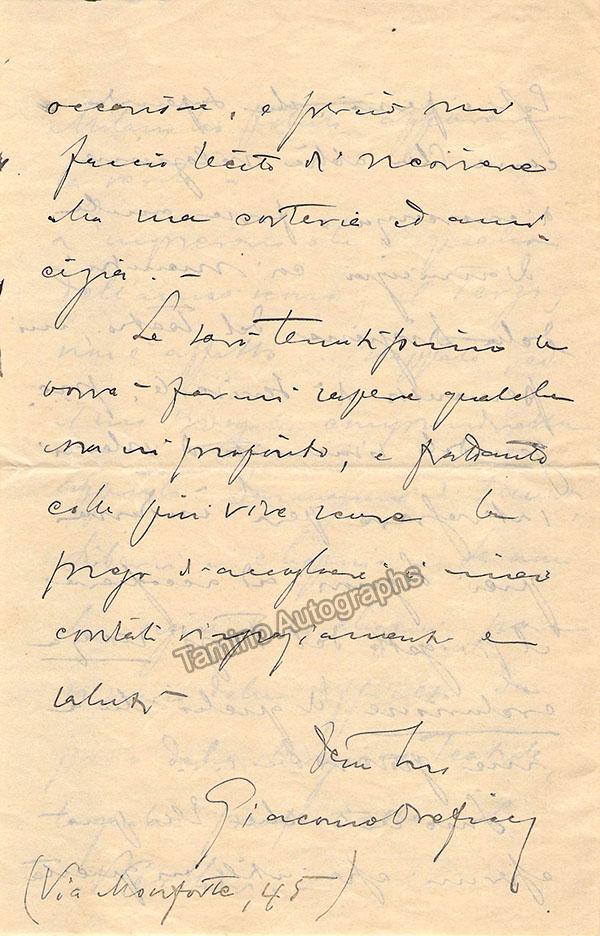 occasione, e perciò mi
faccio lecito di ricorrere
alla sua cortesia ed ami-
cizia. –
Le sarò tenutissimo se
vorrà farmi sapere qualche
cosa in proposito, e frattanto
colle più vive scuse la
prego d'accogliere i miei
cordiali ringraziamenti e
saluti
Dev. Suo
Giacomo Orefice
(Via Monforte, 45)
Tamino Autographs